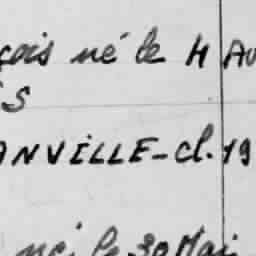 çois né le 4 Au
S
ANVILLE-cl. 19
né le 30 Mai